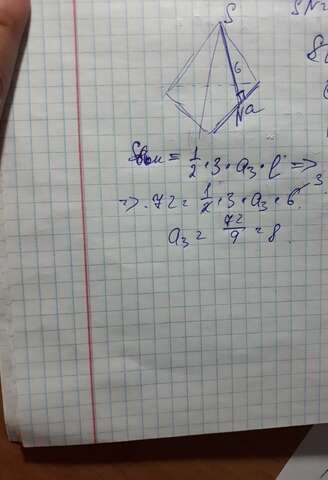 S
SN=
6
N a
Sбок = 1/2 · 3 · a₃ · l ⇒
⇒ 72 = 1/2 · 3 · a₃ · 6 3
a₃ = 72/9 = 8